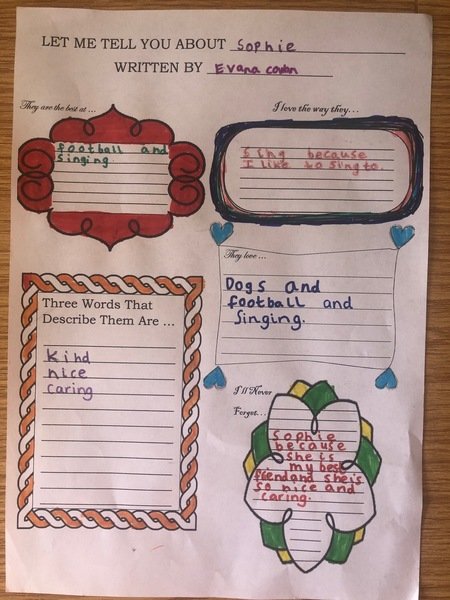 LET ME TELL YOU ABOUT Sophie
WRITTEN BY Evana cowan
They are the best at ...
football and
singing.
I love the way they...
sing because
I like to sing to.
They love ...
Dogs and
football and
singing.
Three Words That
Describe Them Are ...
kind
nice
caring
I'll Never
Forget...
Sophie
because
she is
my best
friend and she is
so nice and
caring.